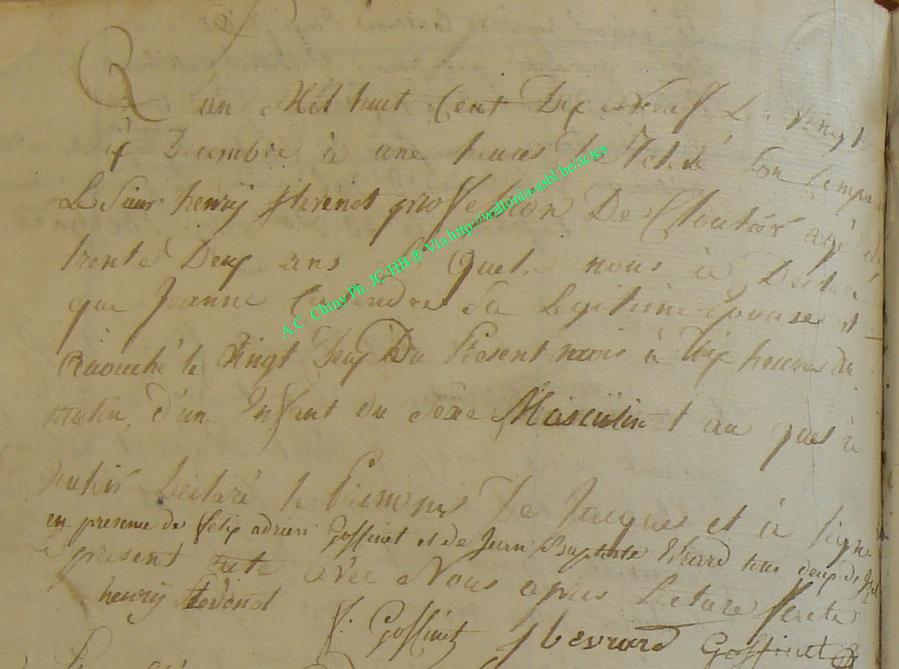 L an Mil huit Cent Dix Neuf Le Vingt
Decembre à une heures
Le Sieur henrij Stevenot profession De Cloutier agé de
trente Deux ans Lequel nous à Déclaré
que Jeanne Sa Legitime Epouse et
acouché le Vingt Deux Du Present mois à Dix heures du
matin, d'un Enfant du Séxe Masculin t au quel à
Declaré le Prenoms De Jacques et à signé
en presence de félix adrien Goffinet et de Jean Baptiste Evrard tous deux de
present acte avec Nous apres Lecture faite
henrij
f: Goffinet J b evrard Goffinet
A.C. Chiny Ph. JC HH ® Via http://wallonia-asbl.be/actes